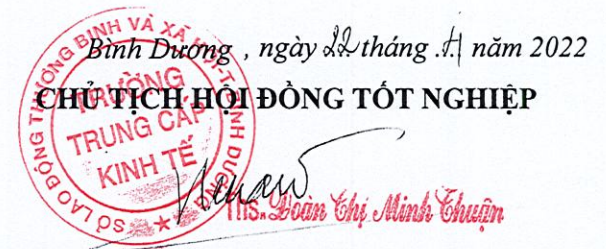 Bình Dương , ngày 22 tháng 11 năm 2022
CHỦ TỊCH HỘI ĐỒNG TỐT NGHIỆP
SỞ LAO ĐỘNG THƯƠNG BINH VÀ XÃ HỘI-TỈNH BÌNH DƯƠNG
TRƯỜNG
TRUNG CẤP
KINH TẾ
Ths. Đoàn Chị Minh Thuận